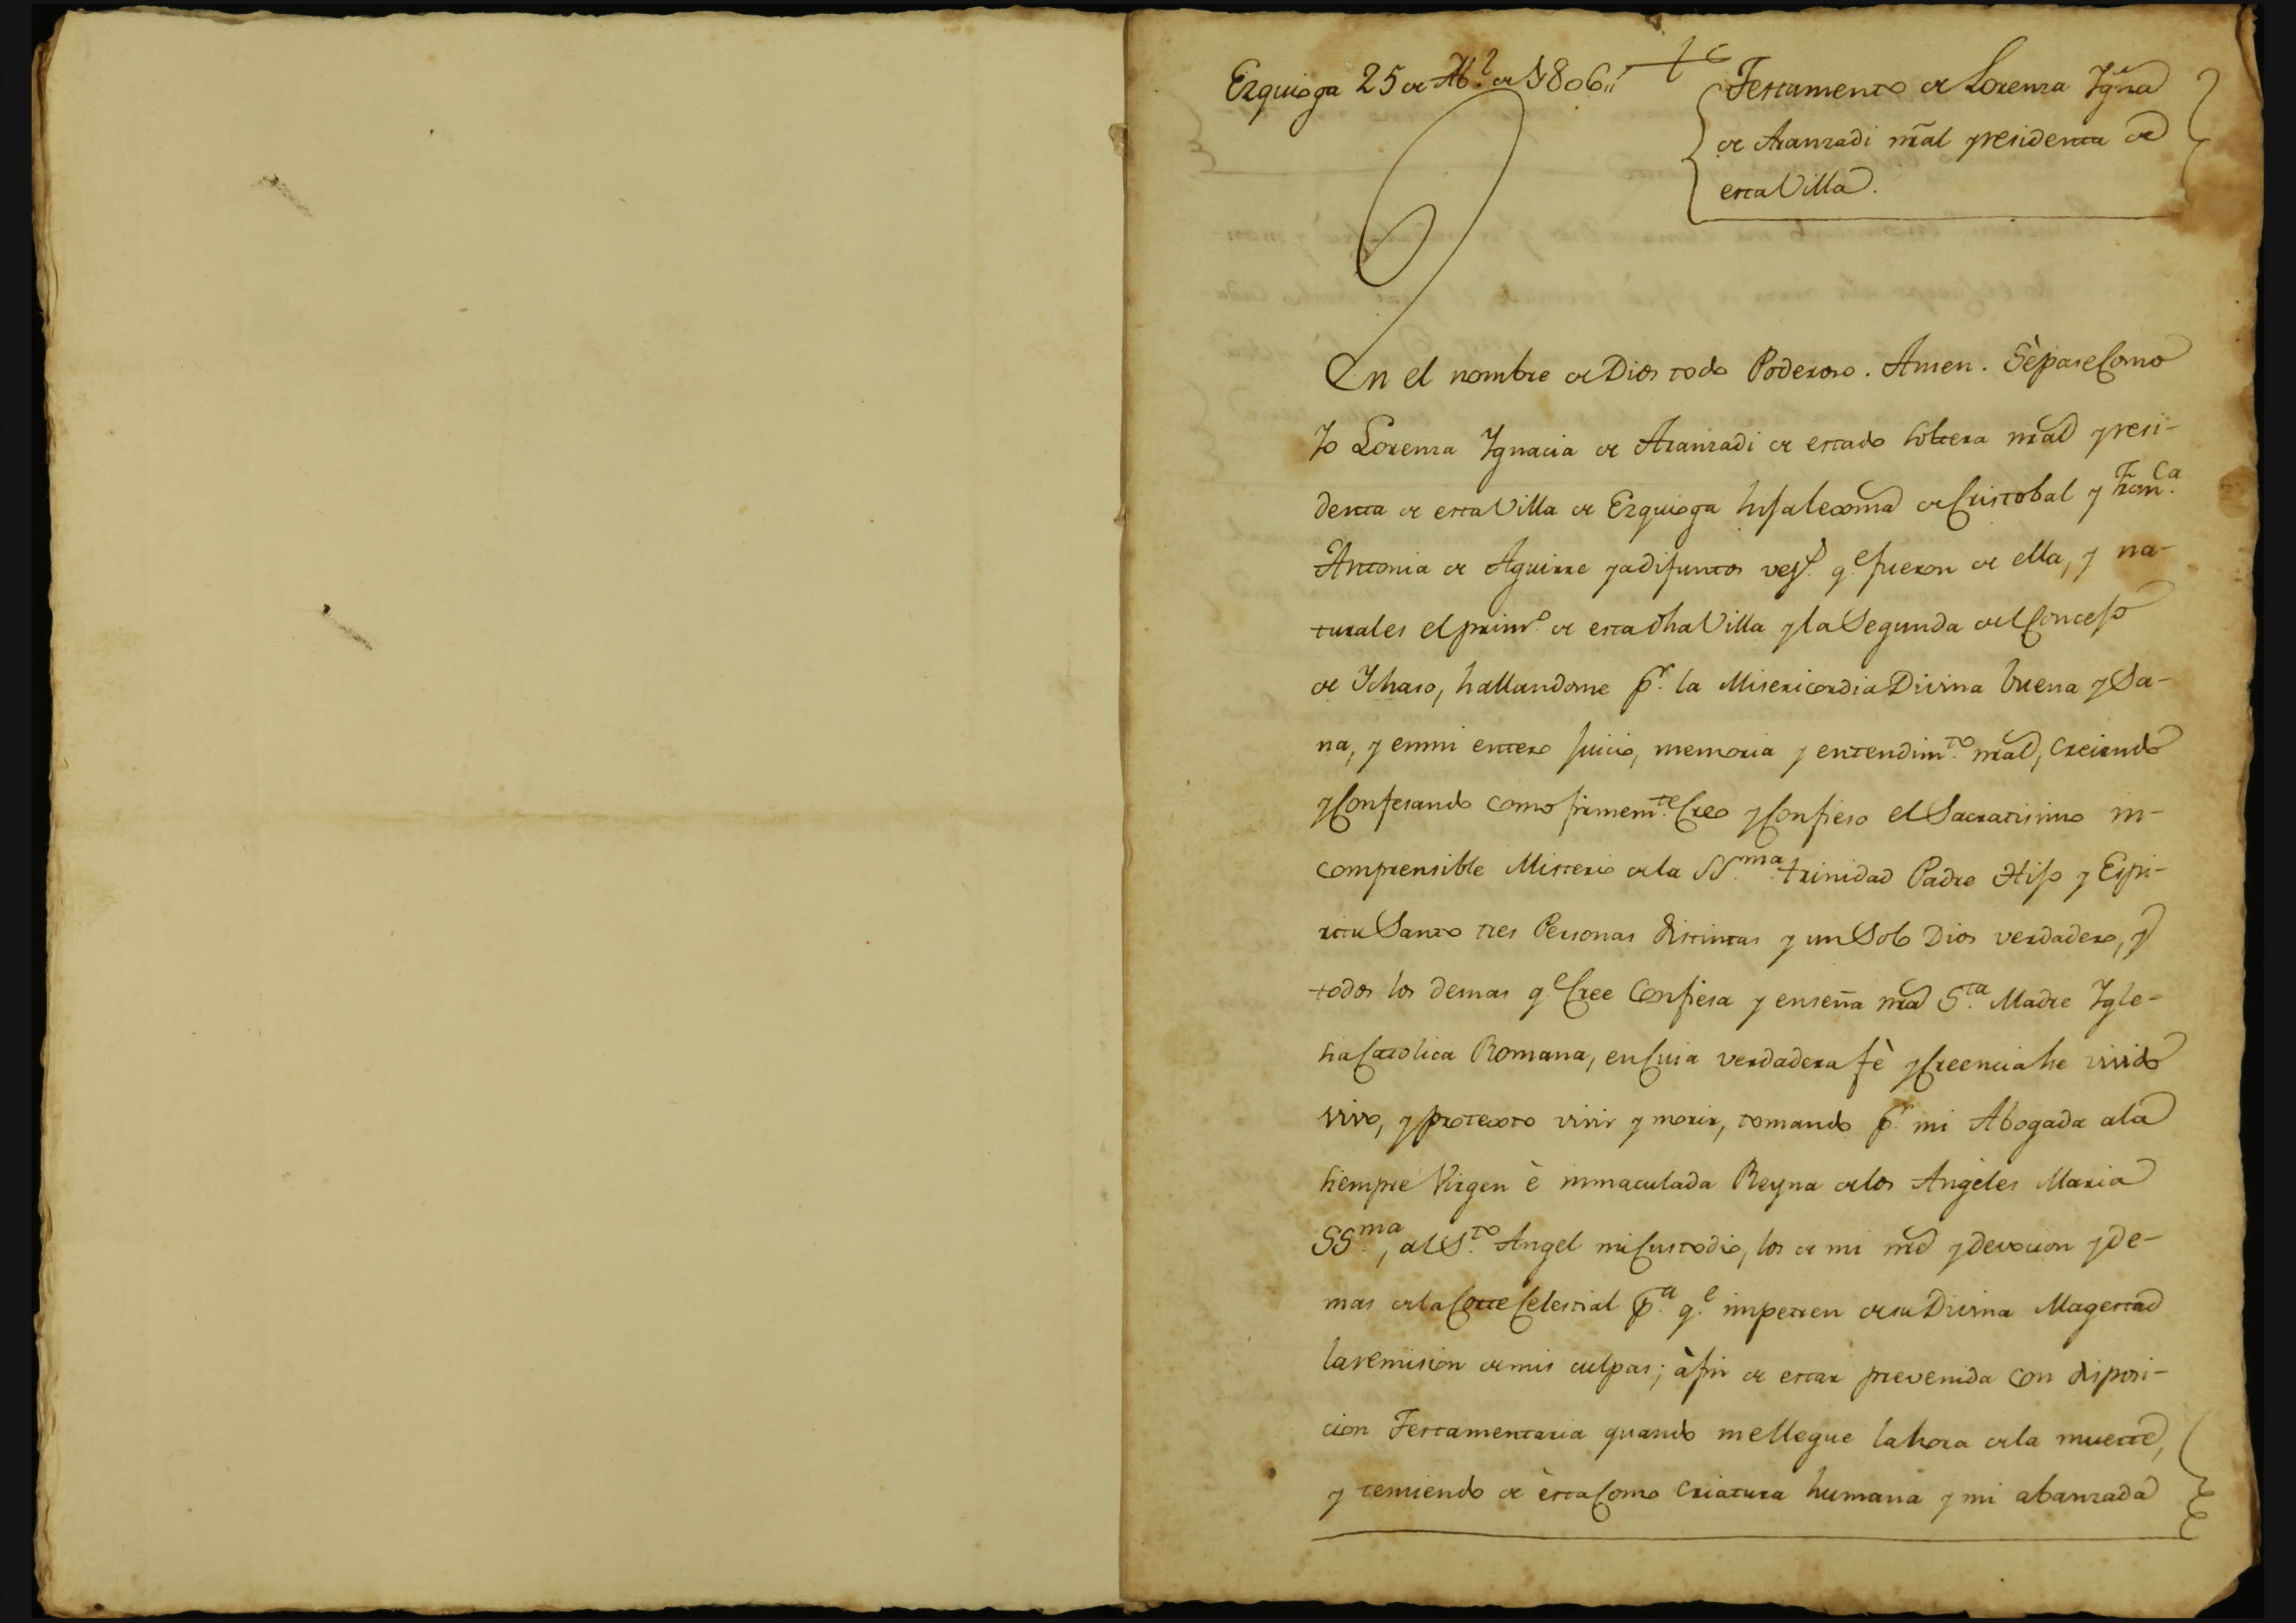 Ezquioga 25 de Ab.l de 1806,,
Testamento de Lorenza Ygna
de Aranzadi nral y residenta de
esta Villa.
En el nombre de Dios todo Poderoso. Amen. Sèpase Como
Yo Lorenza Ygnacia de Aranzadi de estado soltera nral y resi-
denta de esta Villa de Ezquioga hija lexma de Cristobal y Fran.ca
Antonia de Aguirre ya difuntos vez.s q.e fueron de ella, y na-
turales el prim.o de esta dha Villa y la Segunda del Concejo
de Ychaso, hallandome p.r la Misericordia Divina buena y Sa-
na, y en mi entero juicio, memoria y entendim.to nral, creiendo
y Confesando como firmem.te Creo y Confieso el Sacratisimo in-
comprensible Misterio de la SS.ma trinidad Padre Hijo y Espi-
ritu Santo tres Personas distintas y un Solo Dios verdadero, y
todos los demas q.e Cree Confiesa y enseña nra S.ta Madre Ygle-
sia Catolica Romana, en Cuia verdadera fè y Creencia he vivido
vivo, y protexto vivir y morir, tomando p.r mi Abogada a la
siempre Virgen è inmaculada Reyna de los Angeles Maria
SS.ma, al S.to Angel mi Custodio, los de mi nre y devocion y de-
mas de la Corte Celestial p.a q.e impetren de su Divina Magestad
la remision de mis culpas; à fin de estar prevenida con disposi-
cion Testamentaria quando me llegue la hora de la muerte,
y temiendo de èsta Como criatura humana y mi abanzada